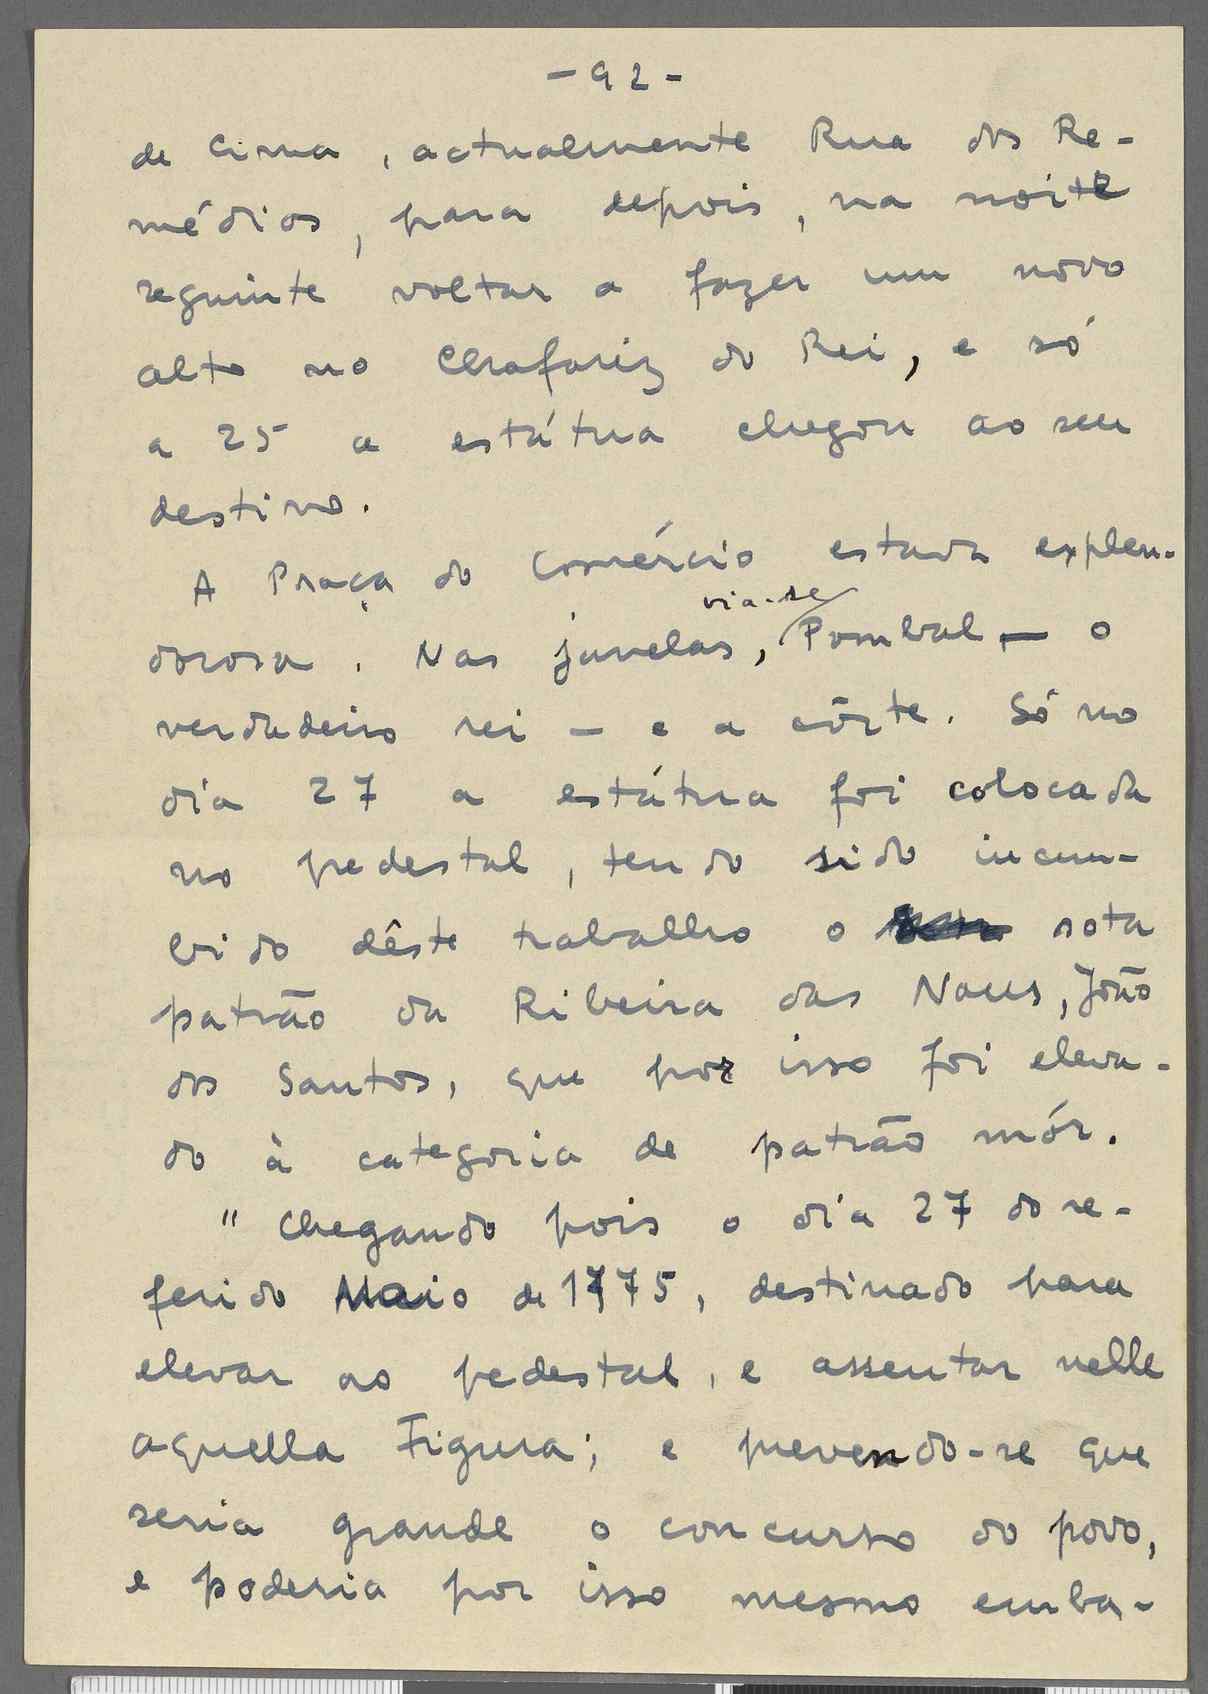 - 92 -
de Cima, actualmente Rua dos Re-
médios, para depois, na noite
seguinte voltar a fazer um novo
alto no Chafariz do Rei, e só
a 25 a estátua chegou ao seu
destino.
A Praça do Comércio estava explen-
dorosa. Nas janelas, via-se Pombal — o
verdadeiro rei — e a côrte. Só no
dia 27 a estátua foi colocada
no pedestal, tendo sido incum-
bido dêste trabalho o sota
patrão da Ribeira das Naus, João
dos Santos, que por isso foi eleva-
do à categoria de patrão mór.
" Chegando pois o dia 27 do re-
ferido Maio de 1775, destinado para
elevar ao pedestal, e assentar nelle
aquella Figura; e prevendo-se que
seria grande o concurso do povo,
e poderia por isso mesmo emba-